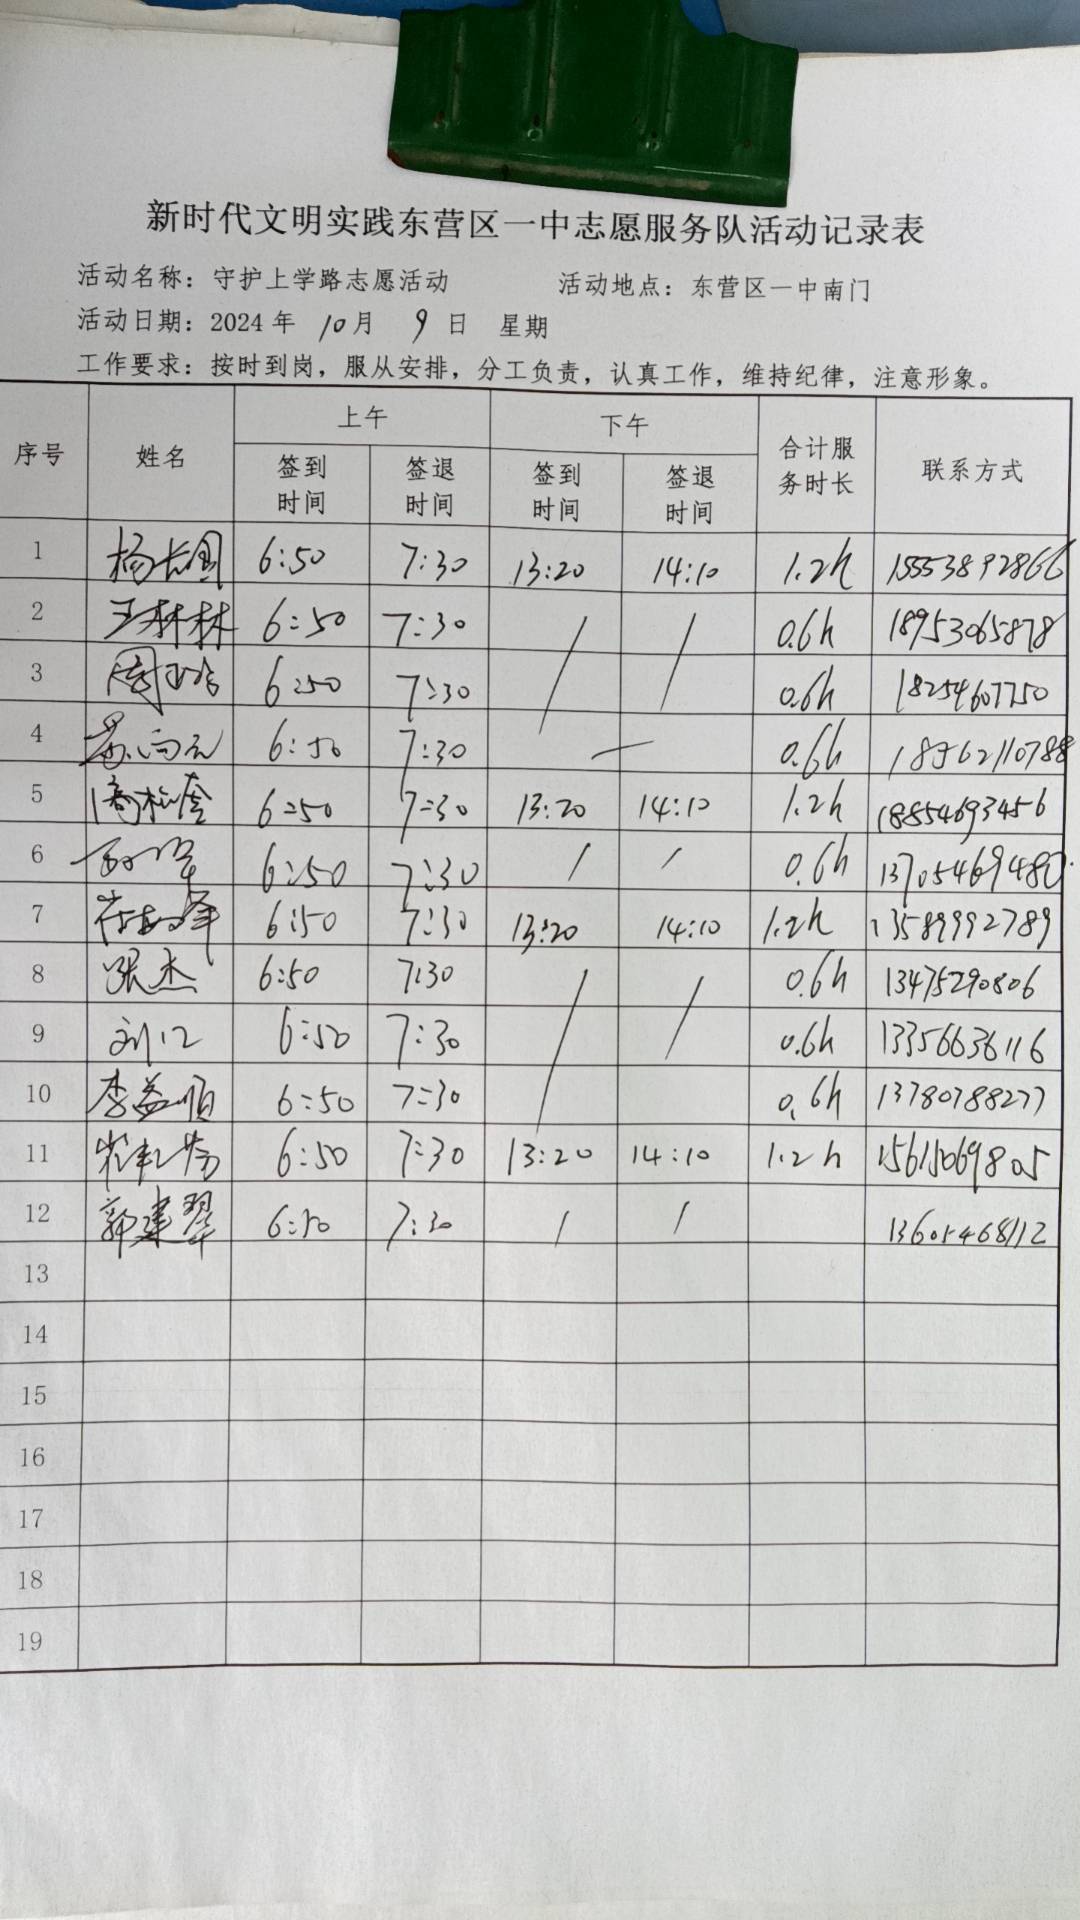 新时代文明实践东营区一中志愿服务队活动记录表
活动名称：守护上学路志愿活动 活动地点：东营区一中南门
活动日期：2024年 10月 9日 星期
工作要求：按时到岗，服从安排，分工负责，认真工作，维持纪律，注意形象。
序号 姓名 上午 下午 合计服务时长 联系方式
签到时间 签退时间 签到时间 签退时间
1 6:50 7:30 13:20 14:10 1.2h 15553892866
2 王林林 6:50 7:30 0.6h 18953065878
3 6:50 7:30 0.6h 18254607750
4 6:50 7:30 — 0.6h 18562110788
5 6:50 7:30 13:20 14:10 1.2h 18854693456
6 6:50 7:30 / / 0.6h 13705469480
7 6:50 7:30 13:20 14:10 1.2h 13589992789
8 张杰 6:50 7:30 / / 0.6h 13475290806
9 刘江 6:50 7:30 0.6h 13356636116
10 李益顺 6:50 7:30 0.6h 13780788277
11 6:50 7:30 13:20 14:10 1.2h 15615069805
12 郭建翠 6:50 7:30 / / 13605468112
13
14
15
16
17
18
19